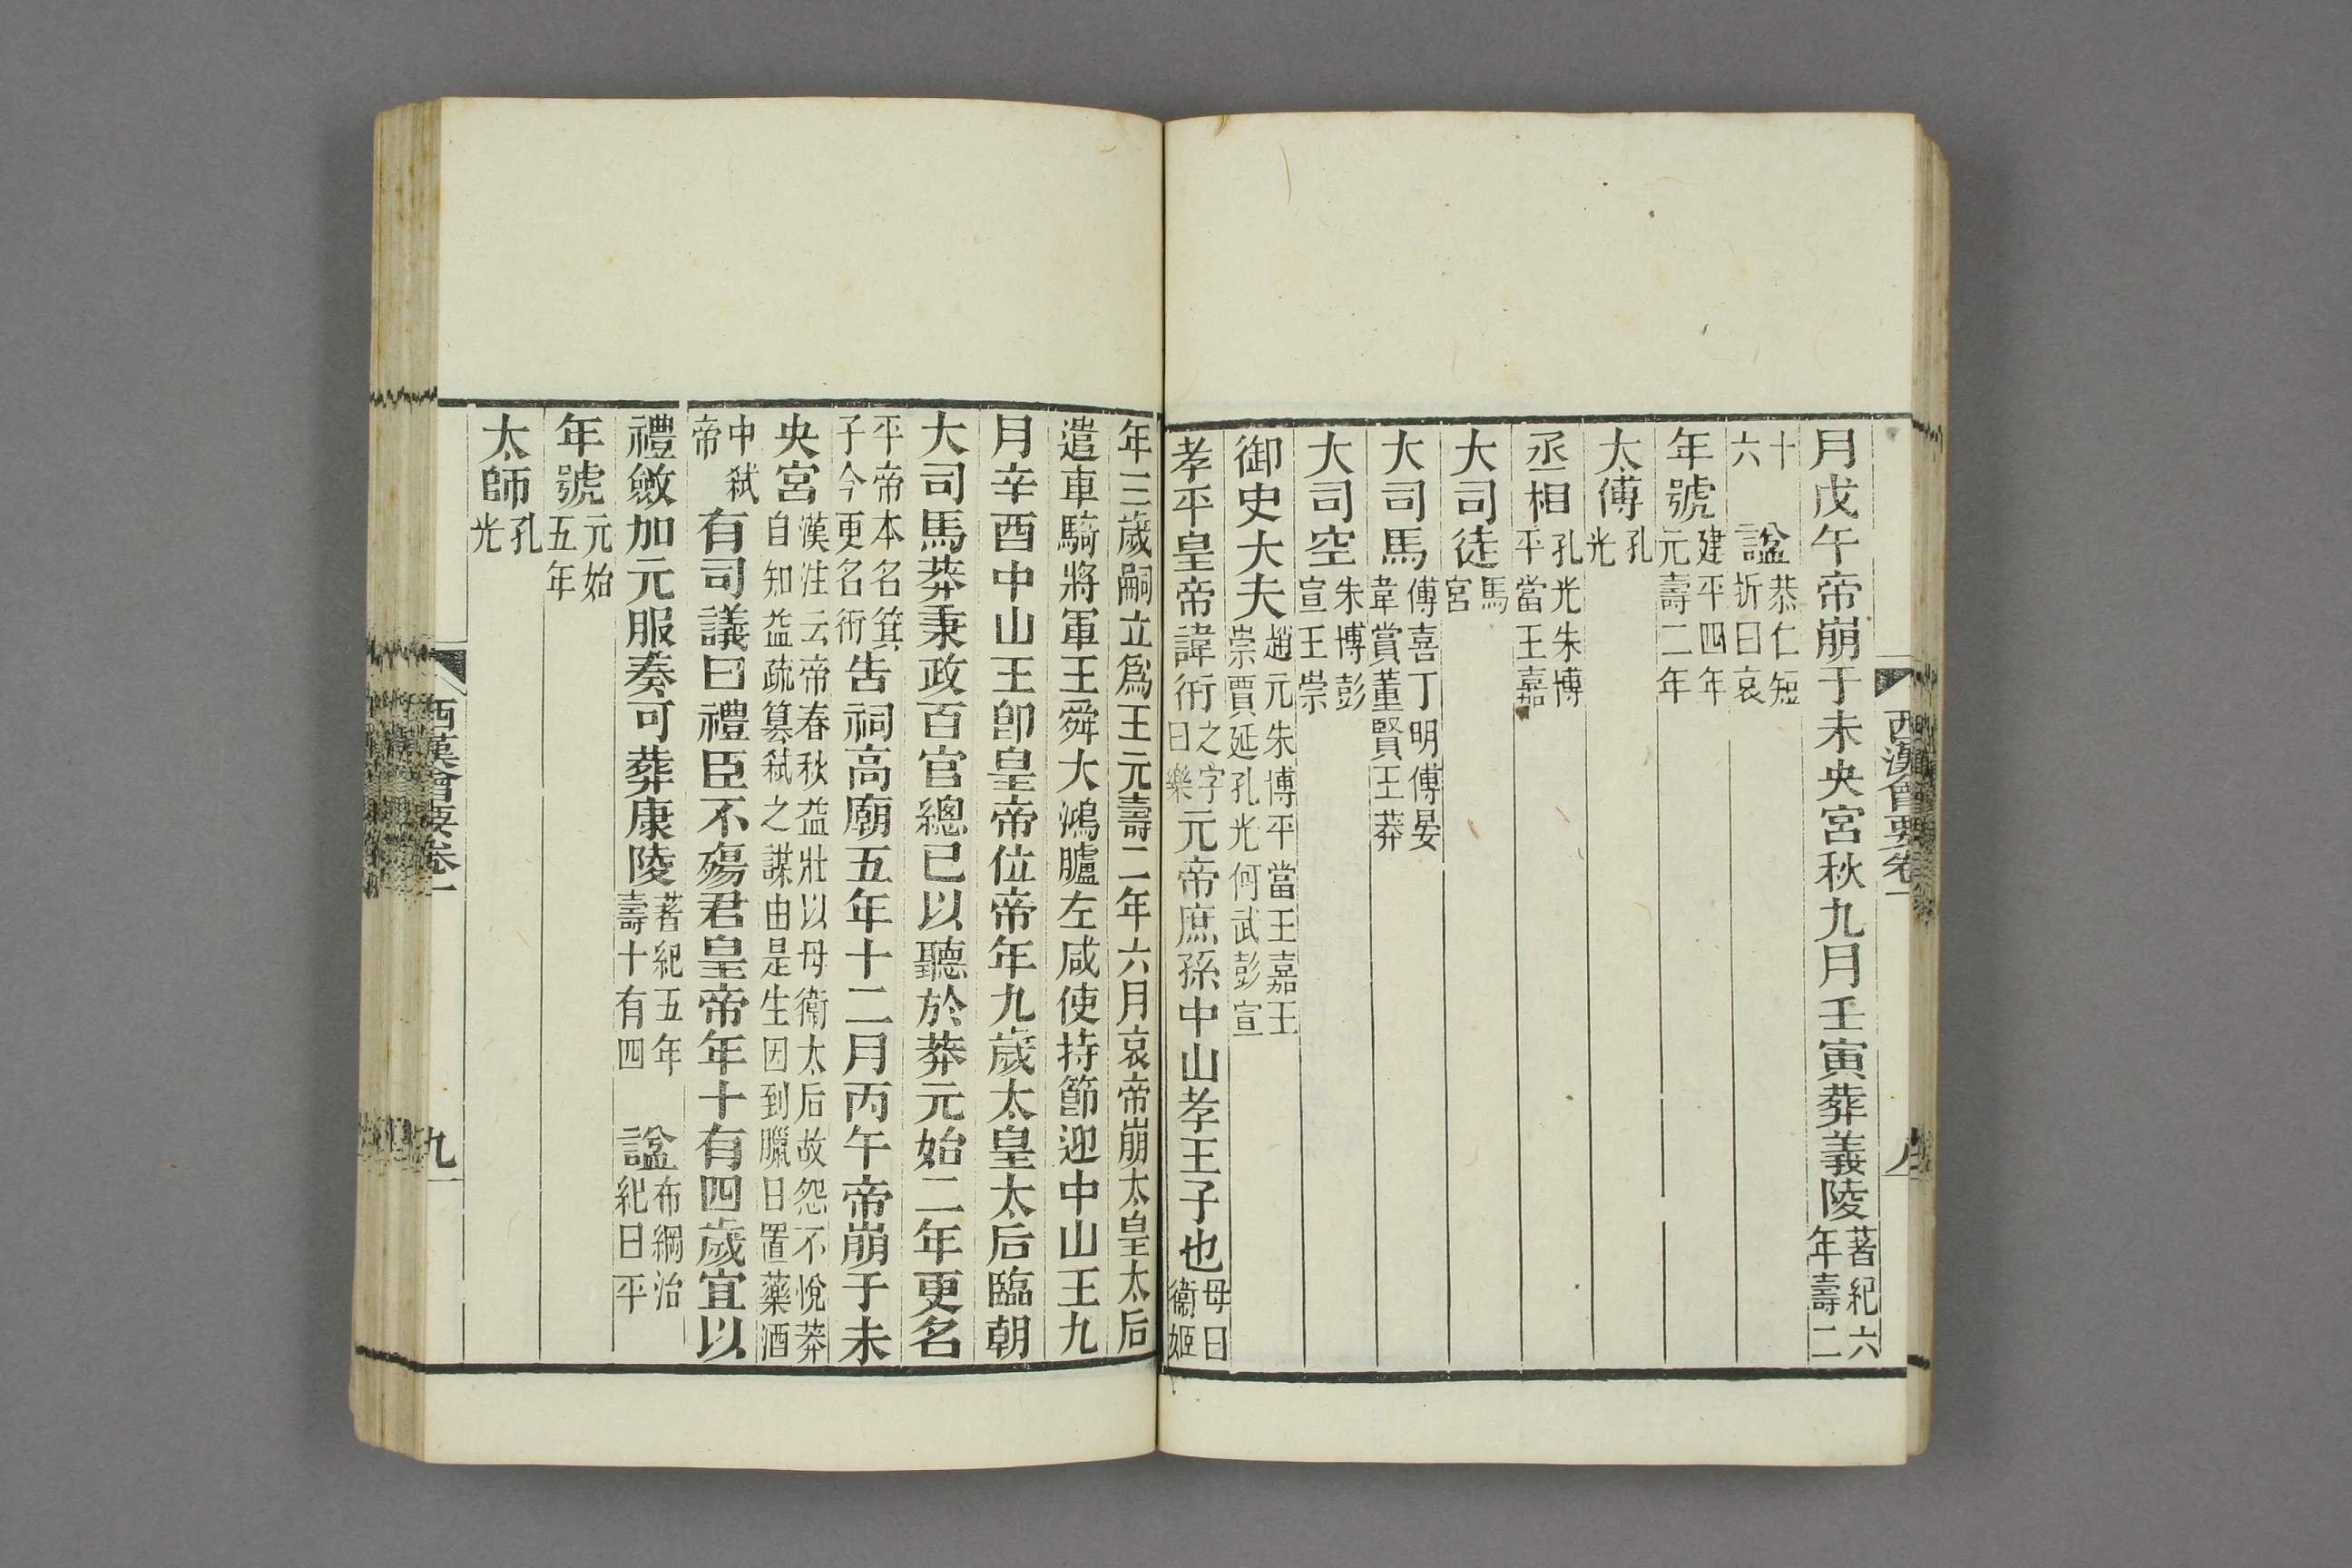 西漢會要卷一
月戊午帝崩于未央宮秋九月壬寅葬義陵著紀六年壽二
十六 諡恭仁短折曰哀
年號建平四年元壽二年
太傅孔光
丞相孔光朱博平當王嘉
大司徒馬宮
大司馬傅喜丁明傅晏韋賞董賢王莽
大司空朱博彭宣王崇
御史大夫趙元朱博平當王嘉王崇賈延孔光何武彭宣
孝平皇帝諱衎之字曰樂元帝庶孫中山孝王子也母曰衞姬
年三歲嗣立爲王元壽二年六月哀帝崩太皇太后
遣車騎將軍王舜大鴻臚左咸使持節迎中山王九
月辛酉中山王卽皇帝位帝年九歲太皇太后臨朝
大司馬莽秉政百官總已以聽於莽元始二年更名
平帝本名箕子今更名衎告祠高廟五年十二月丙午帝崩于未
央宮漢注云帝春秋益壯以母衞太后故怨不悅莽自知益疏篡弒之謀由是生因到臘日置藥酒
中弒帝有司議曰禮臣不殤君皇帝年十有四歲宜以
禮斂加元服奏可葬康陵著紀五年壽十有四 諡布綱治紀曰平
年號元始五年
太師孔光
西漢會要卷一
九